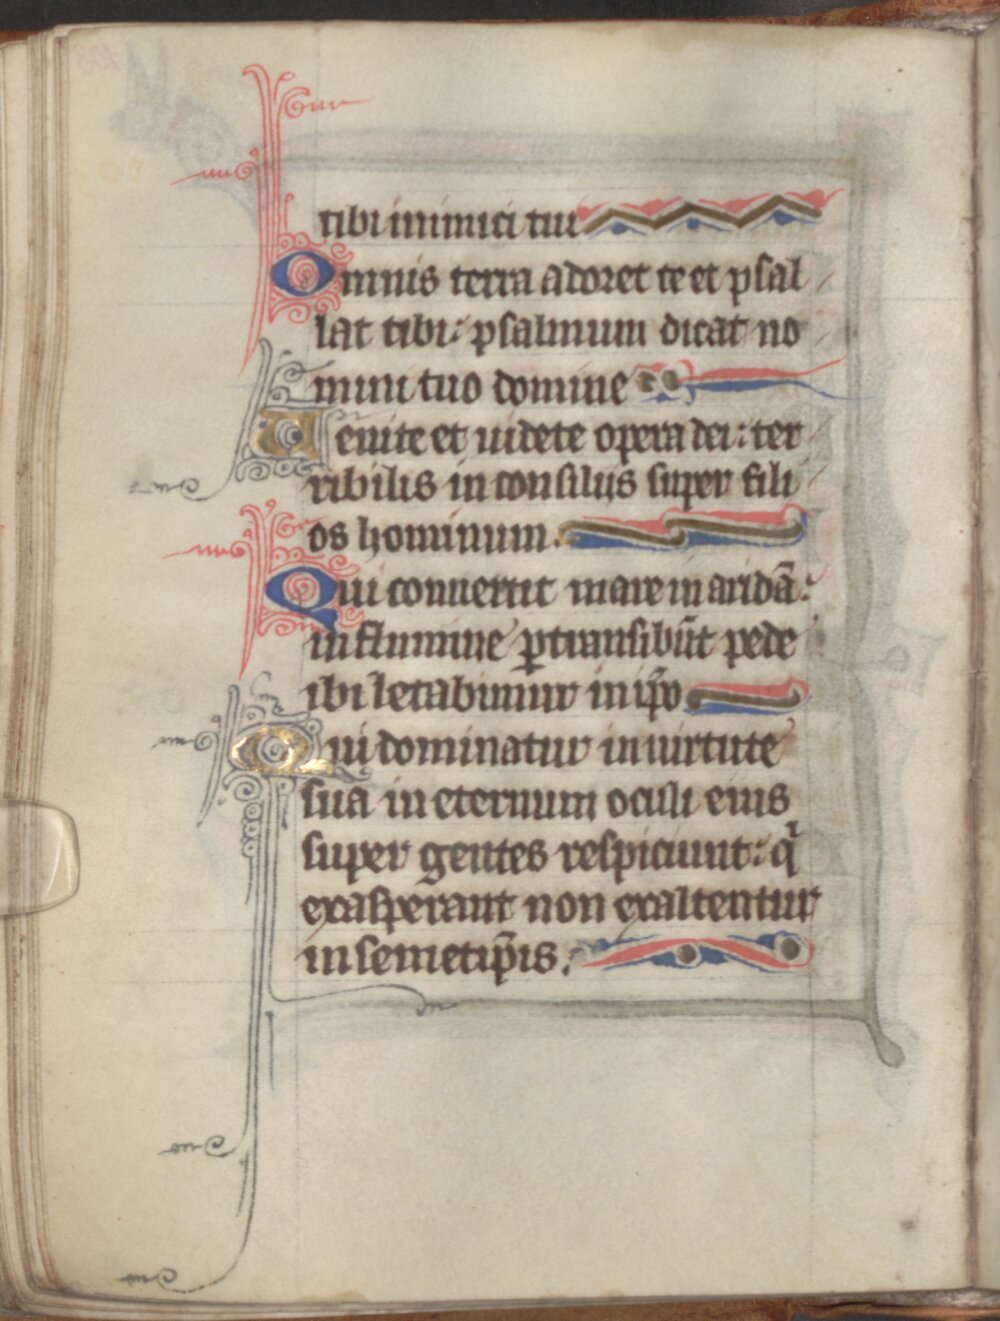 tibi inimici tui
Omnis terra adoret te et psal
lat tibi: psalmum dicat no
mini tuo domine
Uenite et uidete opera dei: ter
ribilis in consiliis super fili
os hominum.
Qui conuertit mare in aridā:
in flumine ꝑtransibūt pede
ibi letabimur in ip̄o
Qui dominatur in uirtute
sua in eternum oculi eius
super gentes respiciunt: qͥ
exasperant non exaltentur
in semetip̄is.